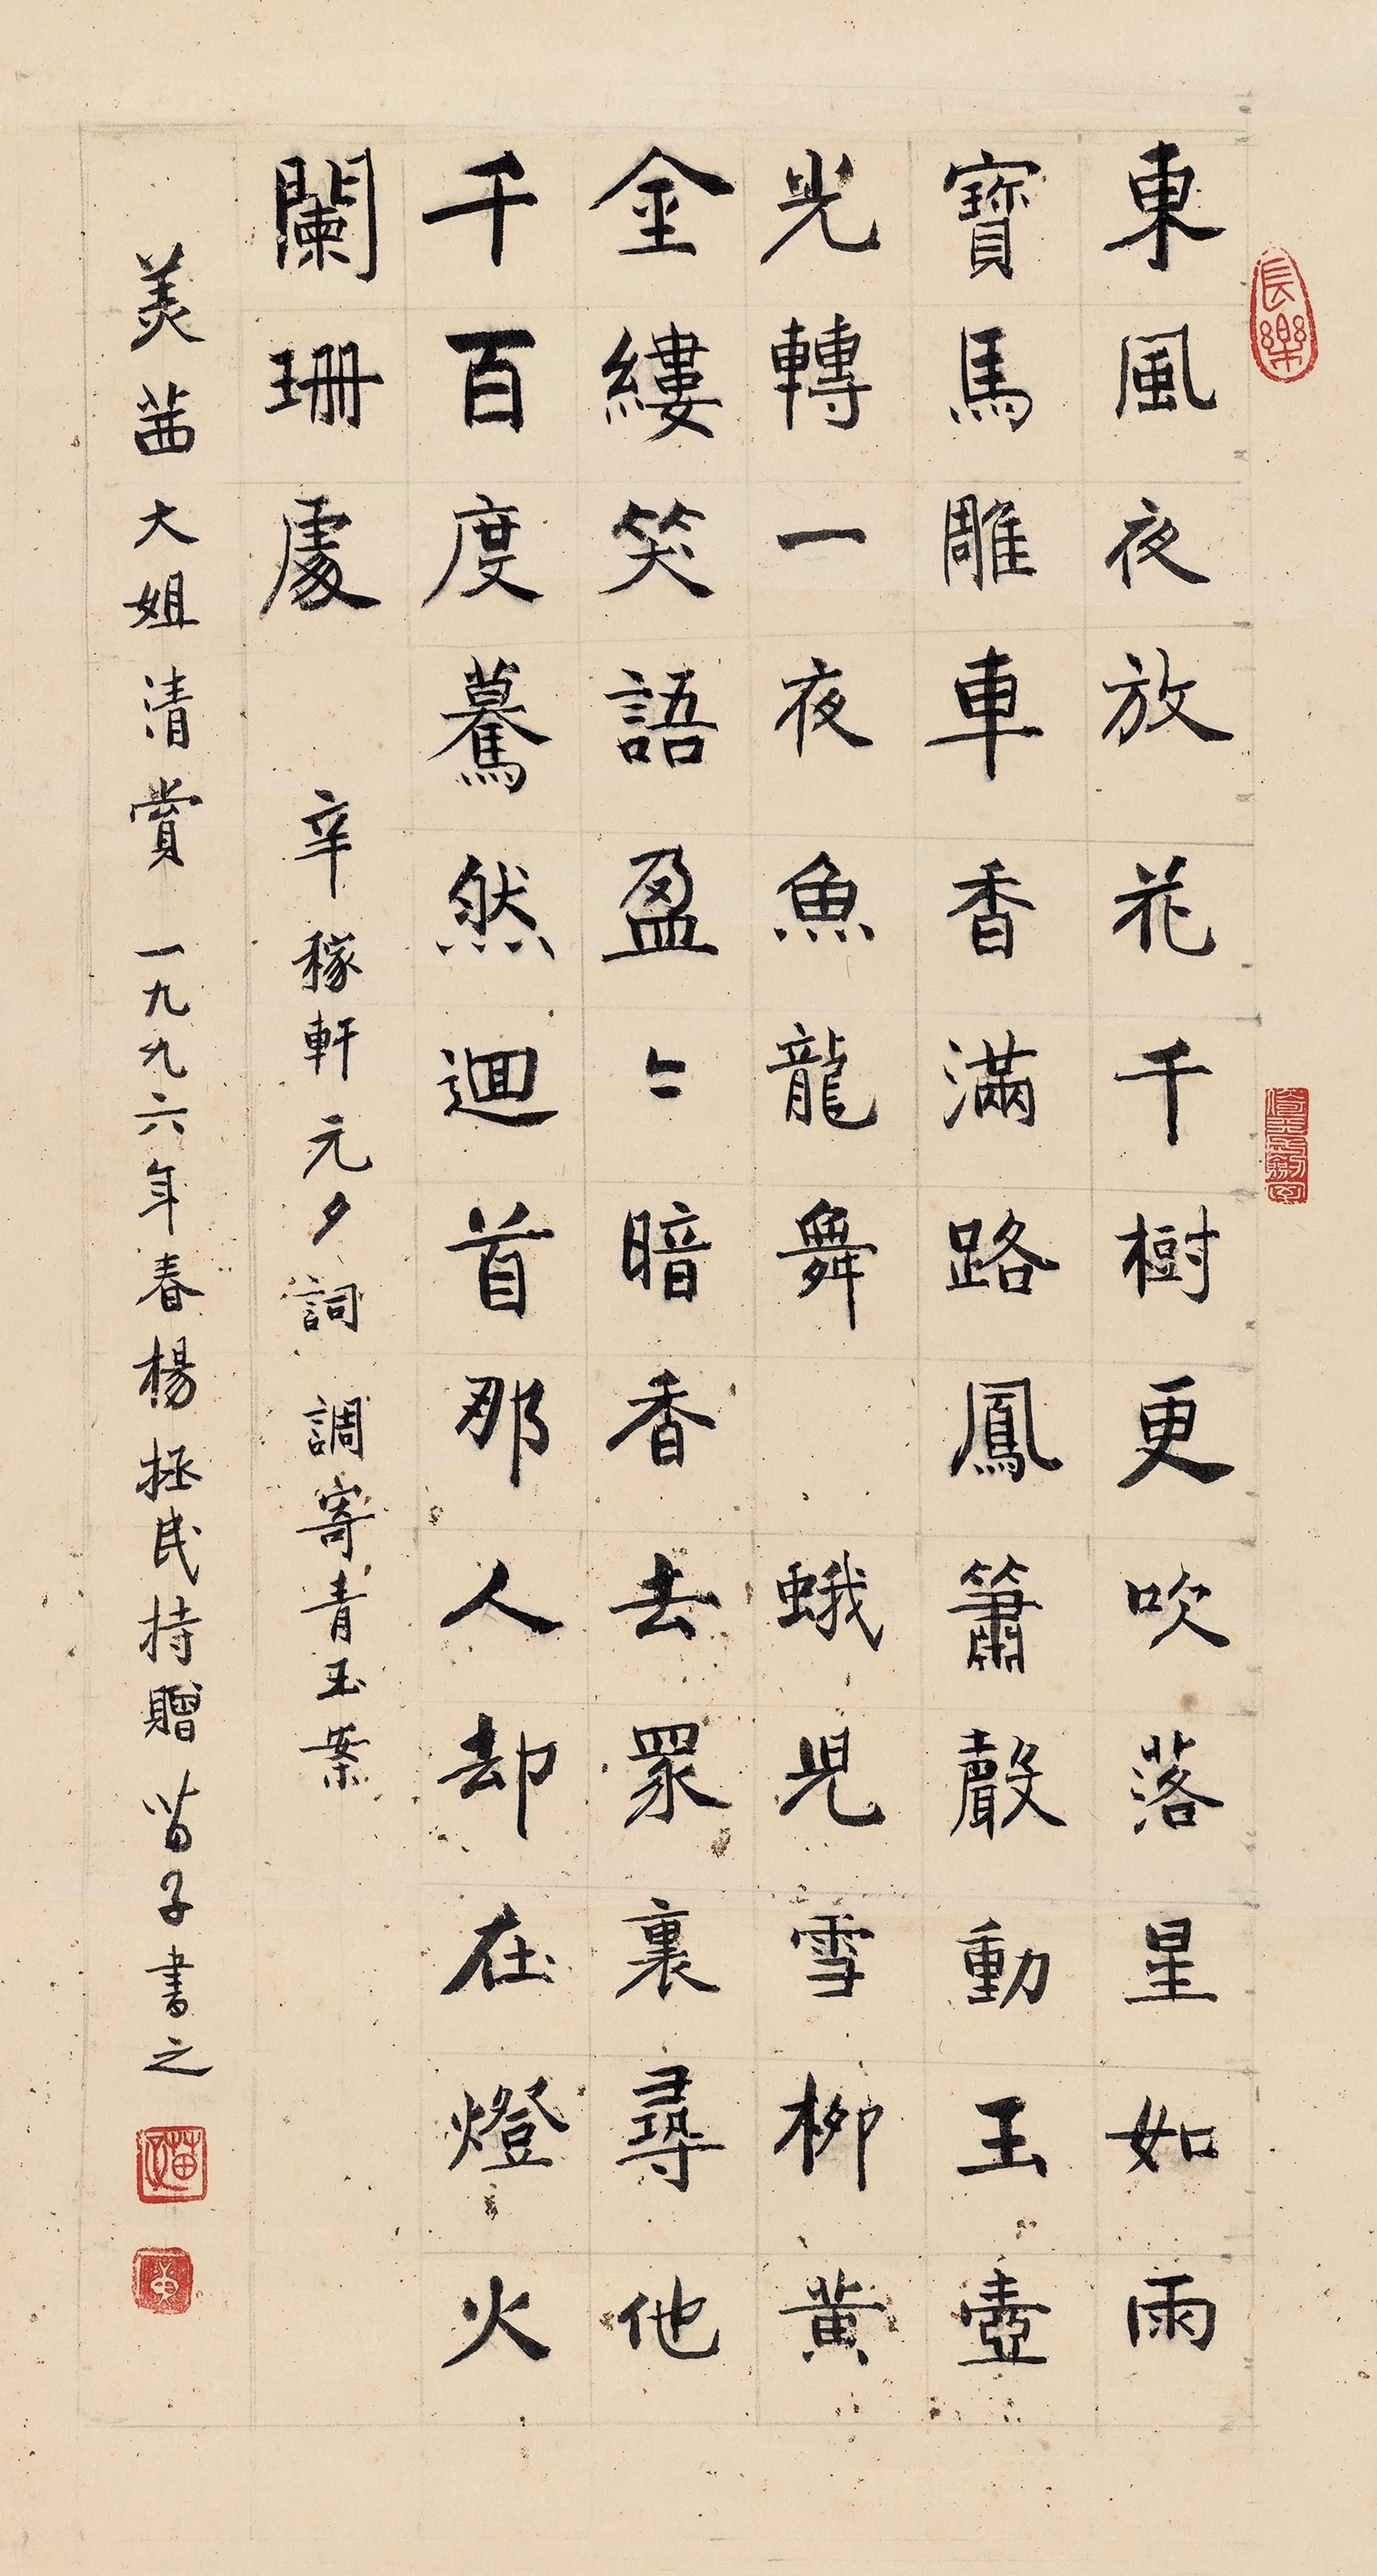 東風夜放花千樹更吹落星如雨
寶馬雕車香滿路鳳簫聲動玉壺
光轉一夜魚龍舞　蛾兒雪柳黃
金縷笑語盈〻暗香去眾裏尋他
千百度驀然迴首那人却在燈火
闌珊處　辛稼軒元夕詞 調寄青玉案
美茜大姐清賞 一九九六年春楊拯民持贈 苗子書之
長樂
苗